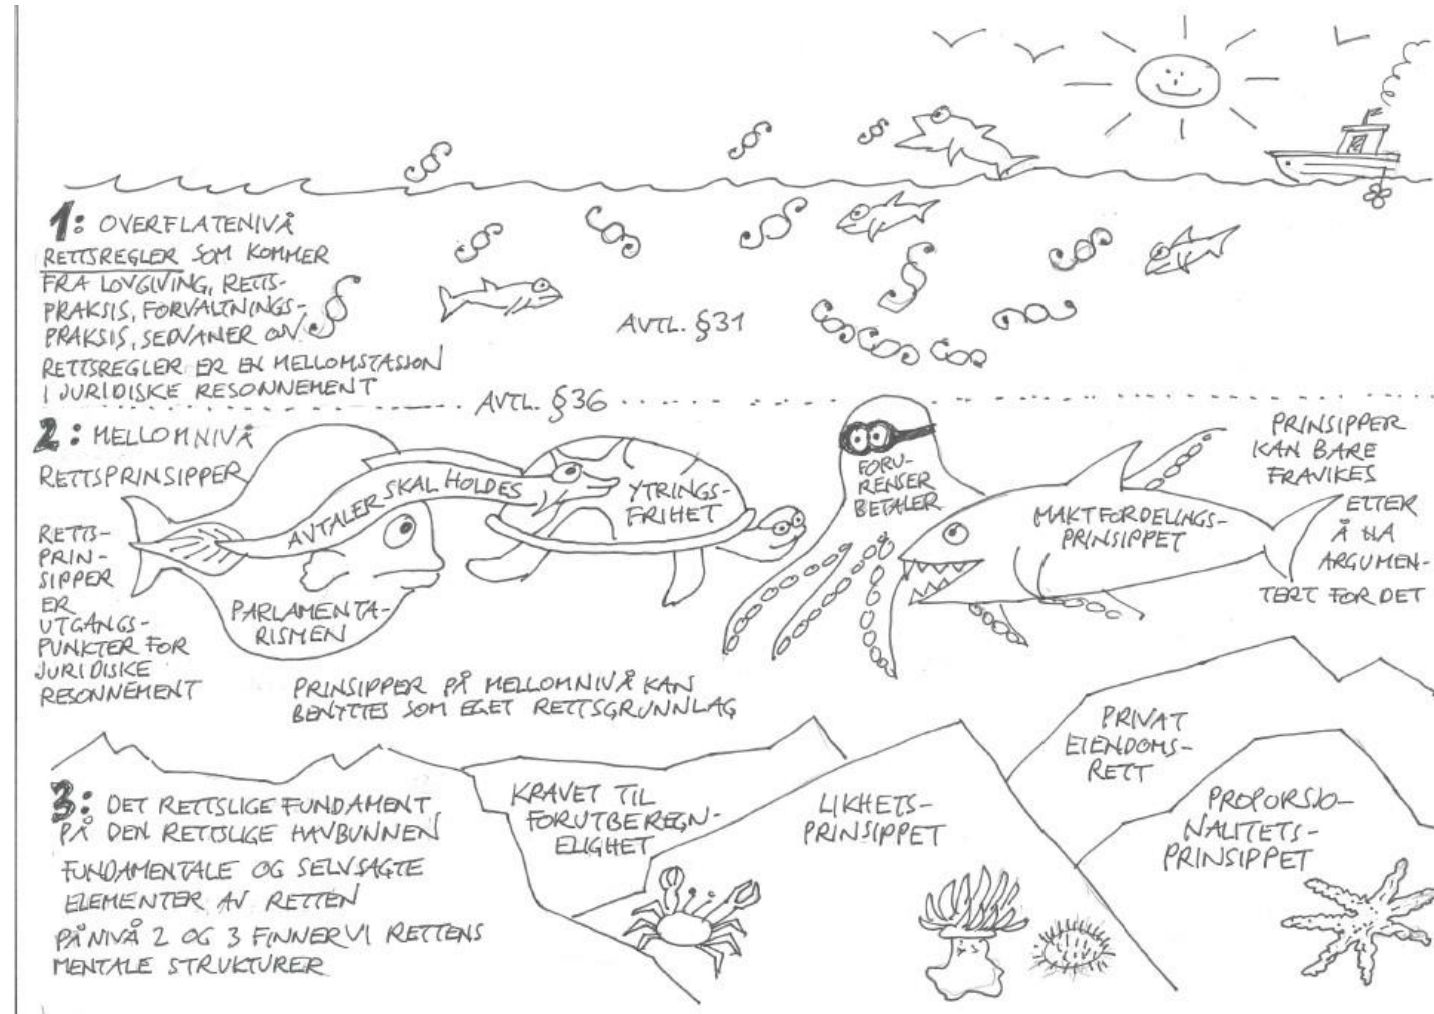 1: OVERFLATENIVÅ
RETTSREGLER SOM KOMMER
FRA LOVGIVING, RETTS-
PRAKSIS, FORVALTNINGS-
PRAKSIS, SEDVANER OSV.
RETTSREGLER ER EN MELLOMSTASJON
I JURIDISKE RESONNEMENT
AVTL. §31
AVTL. §36
2: MELLOMNIVÅ
RETTSPRINSIPPER
RETTS-
PRIN-
SIPPER
ER
UTGANGS-
PUNKTER FOR
JURIDISKE
RESONNEMENT
AVTALER SKAL HOLDES
PARLAMENTA-
RISMEN
YTRINGS-
FRIHET
FORU-
RENSER
BETALER
MAKTFORDELINGS-
PRINSIPPET
PRINSIPPER
KAN BARE
FRAVIKES
ETTER
Å HA
ARGUMEN-
TERT FOR DET
PRINSIPPER PÅ MELLOMNIVÅ KAN
BENYTTES SOM EGET RETTSGRUNNLAG
3: DET RETTSLIGE FUNDAMENT
PÅ DEN RETTSLIGE HAVBUNNEN
FUNDAMENTALE OG SELVSAGTE
ELEMENTER AV RETTEN
PÅ NIVÅ 2 OG 3 FINNER VI RETTENS
MENTALE STRUKTURER
KRAVET TIL
FORUTBEREGN-
ELIGHET
LIKHETS-
PRINSIPPET
PRIVAT
EIENDOMS-
RETT
PROPORSJO-
NALITETS-
PRINSIPPET